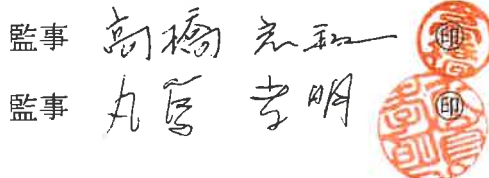 監事 高橋 志和 ㊞
監事 丸尾 孝明 ㊞